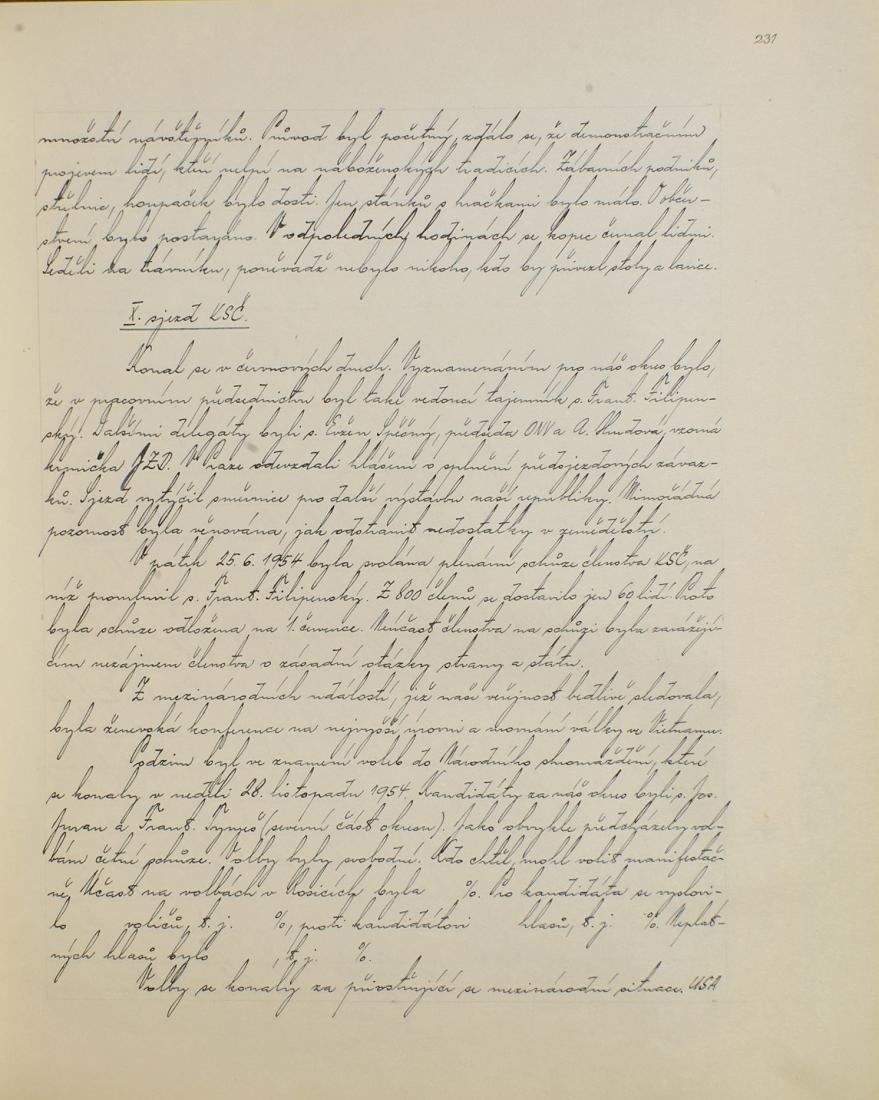 231
množství návštěvníků. Průvod byl početný, zdálo se, že demonstračním
projevem lidí, kteří nelpí na náboženských tradicích. Zábavních podniků,
střelnic, houpaček bylo dosti. Jen stánků s hračkami bylo málo. O občer-
stvení bylo postaráno. V odpoledních hodinách se kopec černal lidmi.
Seděli na trávníku, poněvadž nebylo nikoho, kdo by přivezl stoly a lavice.
X. sjezd KSČ.
Konal se v červnových dnech. Vyznamenáním pro náš okres bylo,
že v pracovním předsednictvu byl také vedoucí tajemník s. Frant. Filipen-
ský. Dalšími delegáty byli s. Evžen Spěšný, předseda ONV a A. Hudová, vzorná
krmička JZD. V Praze odevzdali hlášení o splnění předsjezdových závaz-
ků. Sjezd vytýčil směrnice pro další výstavbu naší republiky. Mimořádná
pozornost byla věnována, jak odstranit nedostatky v zemědělství.
V pátek 25.6. 1954 byla svolána plenární schůze členstva KSČ, na
níž promluvil s. Frant. Filipenský. Z 800 členů se dostavilo jen 60 lidí. Proto
byla schůze odložena na 1. července. Neúčast členstva na schůzi byla zarážejí-
cím nezájmem členstva o zásadní otázky strany a státu.
Z mezinárodních událostí, jež naše veřejnost bedlivě sledovala,
byla ženevská konference na nejvyšší úrovni a urovnání války ve Vietnamu.
Podzim byl ve znamení voleb do Národního shromáždění, které
se konaly v neděli 28. listopadu 1954. Kandidáty za náš okres byli s. Jos.
Juran a Frant. Tymeš (severní část okresu). Jako obvykle předcházely vol-
bám četné schůze. Volby byly svobodné. Kdo chtěl, mohl volit manifestač-
ně. Účast na volbách v Rosicích byla %. Pro kandidáta se vyslovi-
lo voličů, t. j. %, proti kandidátovi hlasů, t. j. %. Neplat-
ných hlasů bylo , t. j. %.
Volby se konaly za přiostřující se mezinárodní situace. USA